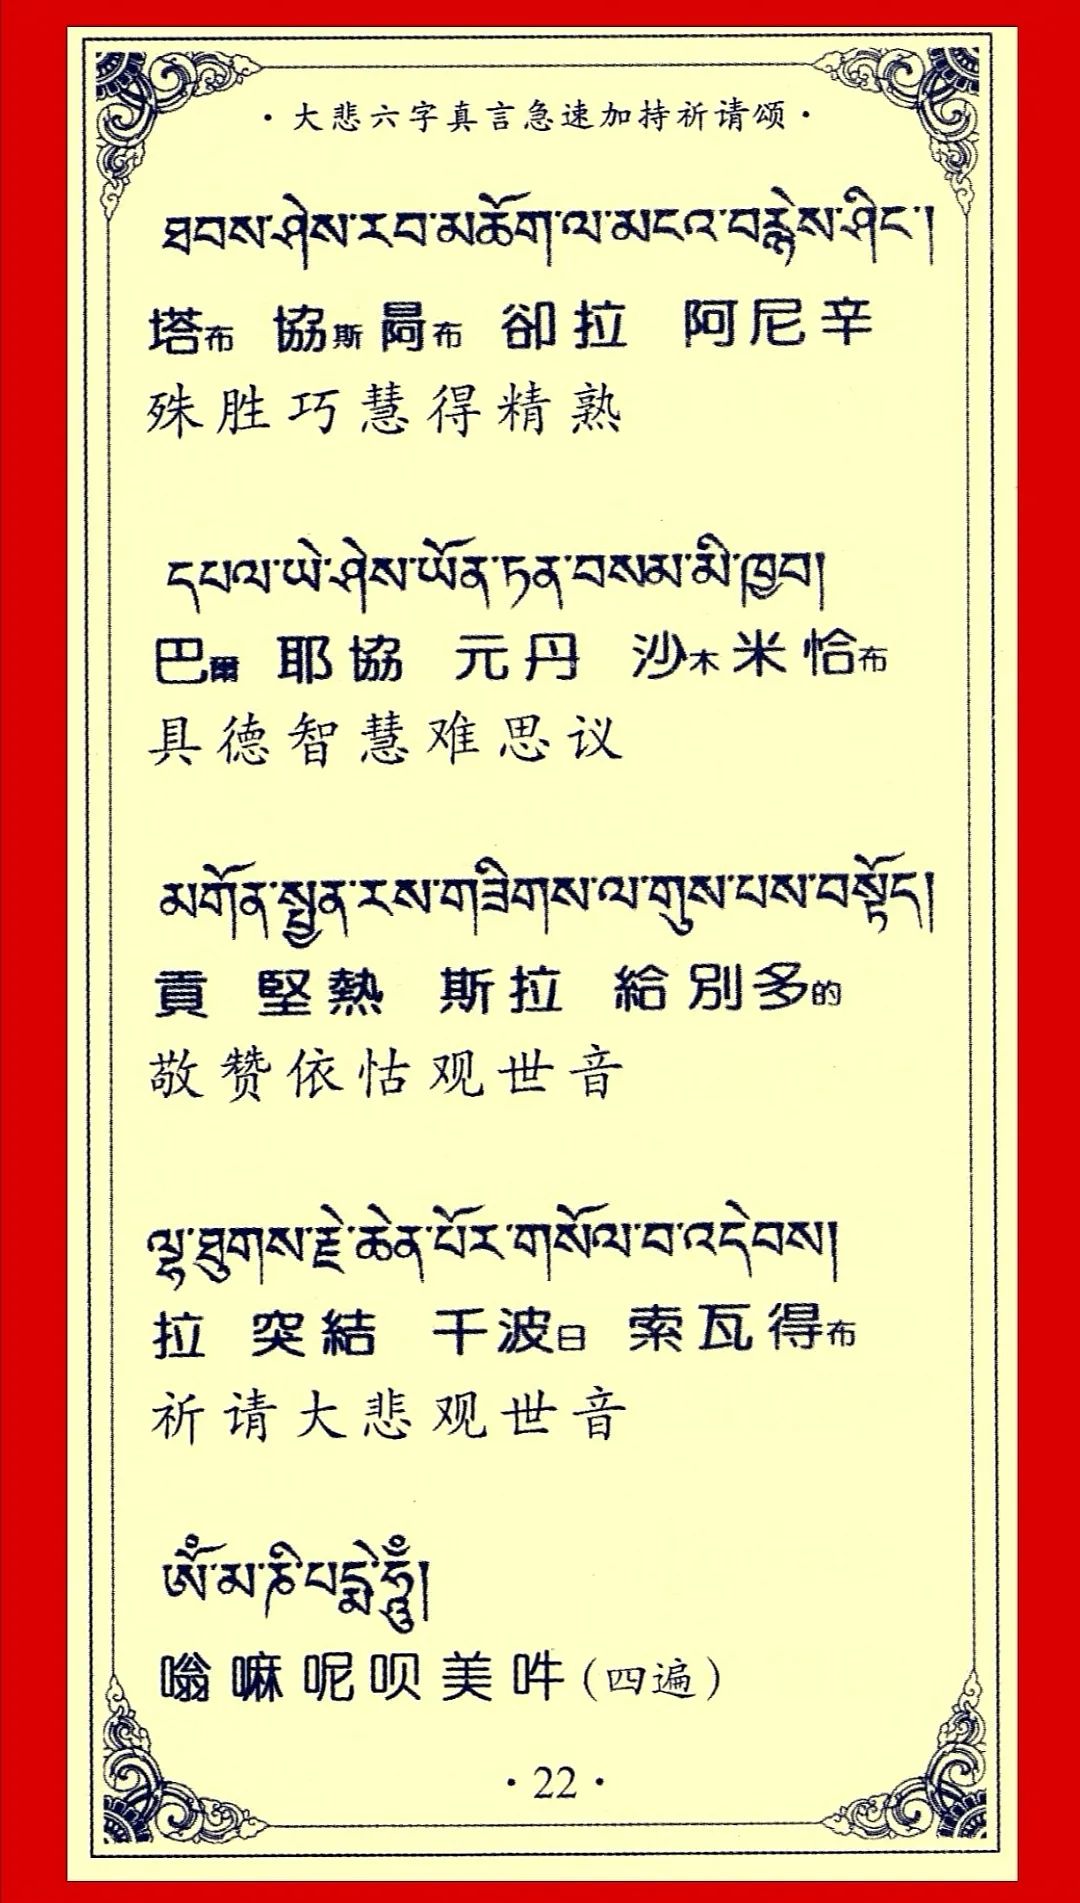 ·大悲六字真言急速加持祈请颂·
ཐབས་ཤེས་རབ་མཆོག་ལ་མངའ་བརྙེས་ཤིང་།
塔布 協斯 布 卻拉 阿尼辛
殊胜巧慧得精熟
དཔལ་ཡེ་ཤེས་ཡོན་ཏན་བསམ་མི་ཁྱབ།
巴爾 耶協 元丹 沙木米恰布
具德智慧难思议
མགོན་སྤྱན་རས་གཟིགས་ལ་གུས་པས་བསྟོད།
貢 堅熱 斯拉 給別多的
敬赞依怙观世音
ལྷ་ཐུགས་རྗེ་ཆེན་པོར་གསོལ་བ་འདེབས།
拉 突結 千波日 索瓦得布
祈请大悲观世音
ༀ་མ་ཎི་པདྨེ་ཧཱུྃ།
嗡嘛呢呗美吽(四遍)
·22·